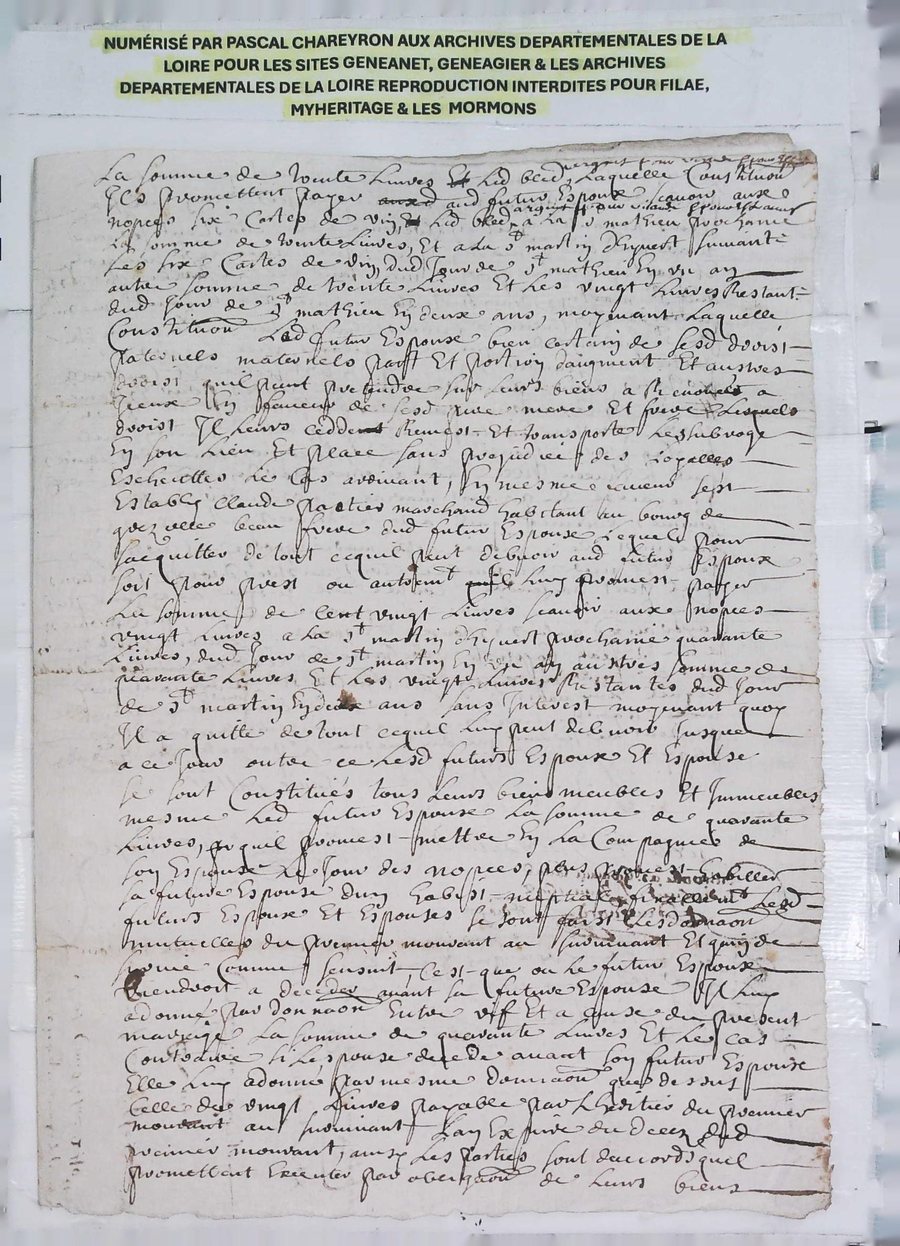 NUMÉRISÉ PAR PASCAL CHAREYRON AUX ARCHIVES DEPARTEMENTALES DE LA
LOIRE POUR LES SITES GENEANET, GENEAGIER & LES ARCHIVES
DEPARTEMENTALES DE LA LOIRE REPRODUCTION INTERDITES POUR FILAE,
MYHERITAGE & LES MORMONS
La somme de trente Livres Led bled Laquelle Constitution
Ils promettent payer aud futur Espoux scauoir aux
nopces six Cartes de vin, Led bled, a la st mathieu prochaine
La somme de trente Liures, Et a La st martin dhyuert suiuante
Les six Cartes de vin, dud Jour de st mathieu En un an
autre somme de trente Liures Et Les vingt Liures Restant
dud Jour de st mathieu En deux ans, moyenant Laquelle
Constitution Led futur Espoux bien certain de sesd droist
paternels maternels part Et portion daugment Et autres
droist quil peut pretendre sur Leurs biens a
En faueur de sesd pere mere Et frere Lesquels
droist Il Leurs cedde Remest Et transporte Les subroge
En son Lieu Et place sans prejudice des Loyalles
Escheuttes Le Cas aduenant, En mesme
Estably Claude marchand habitant au bourg de
beau frere dud futur Espoux Lequel pour
sacquitter de tout cequil peut debuoir aud futur Espoux
soit pour prest ou autremt Luy promest payer
La somme de Cent vingt Liures scauoir aux nopces
vingt Liures a La st martin dhyuert prochaine quarante
Liures, dud Jour de st martin En un an autres somme de
quarante Liures Et Les vingt Liures Restantes dud Jour
de st martin En deux ans sans Interest moyenant quoy
Il a quitte de tout cequil Luy peut debuoir Jusques
a ce Jour outre ce Lesd futurs Espoux Et Espouse
se sont Constitués tous Leurs biens meubles Et Immeubles
mesme Led futur Espoux La somme de quarante
Liures, quil promest mettre En La Compagnie de
son Espouse Le Jour des nopces, plus promest habiller
sa future Espouse dun habist neptial finallemt Lesd
futurs Espoux Et Espouses se sont faist Lesd donaon
mutuelles du premier mourant au suruiuant Et
Comme sensuit, Cest que ou Le futur Espoux
viendroit a deceder auant sa future Espouse Il Luy
a donné par donnaon Entre vif Et a cause du present
mariage La somme de quarante Liures Et Le Cas
Contraire si Lespouse decede auant son futur Espoux
Elle Luy a donné par mesme donnaon que dessus
Celle de vingt Liures payable par Lheritier du premier
mourant au suruiuant Lan Expiré du deces dud
premier mourant, ainsy Les parties sont daccord
promettent Executer par obligaon de Leurs biens